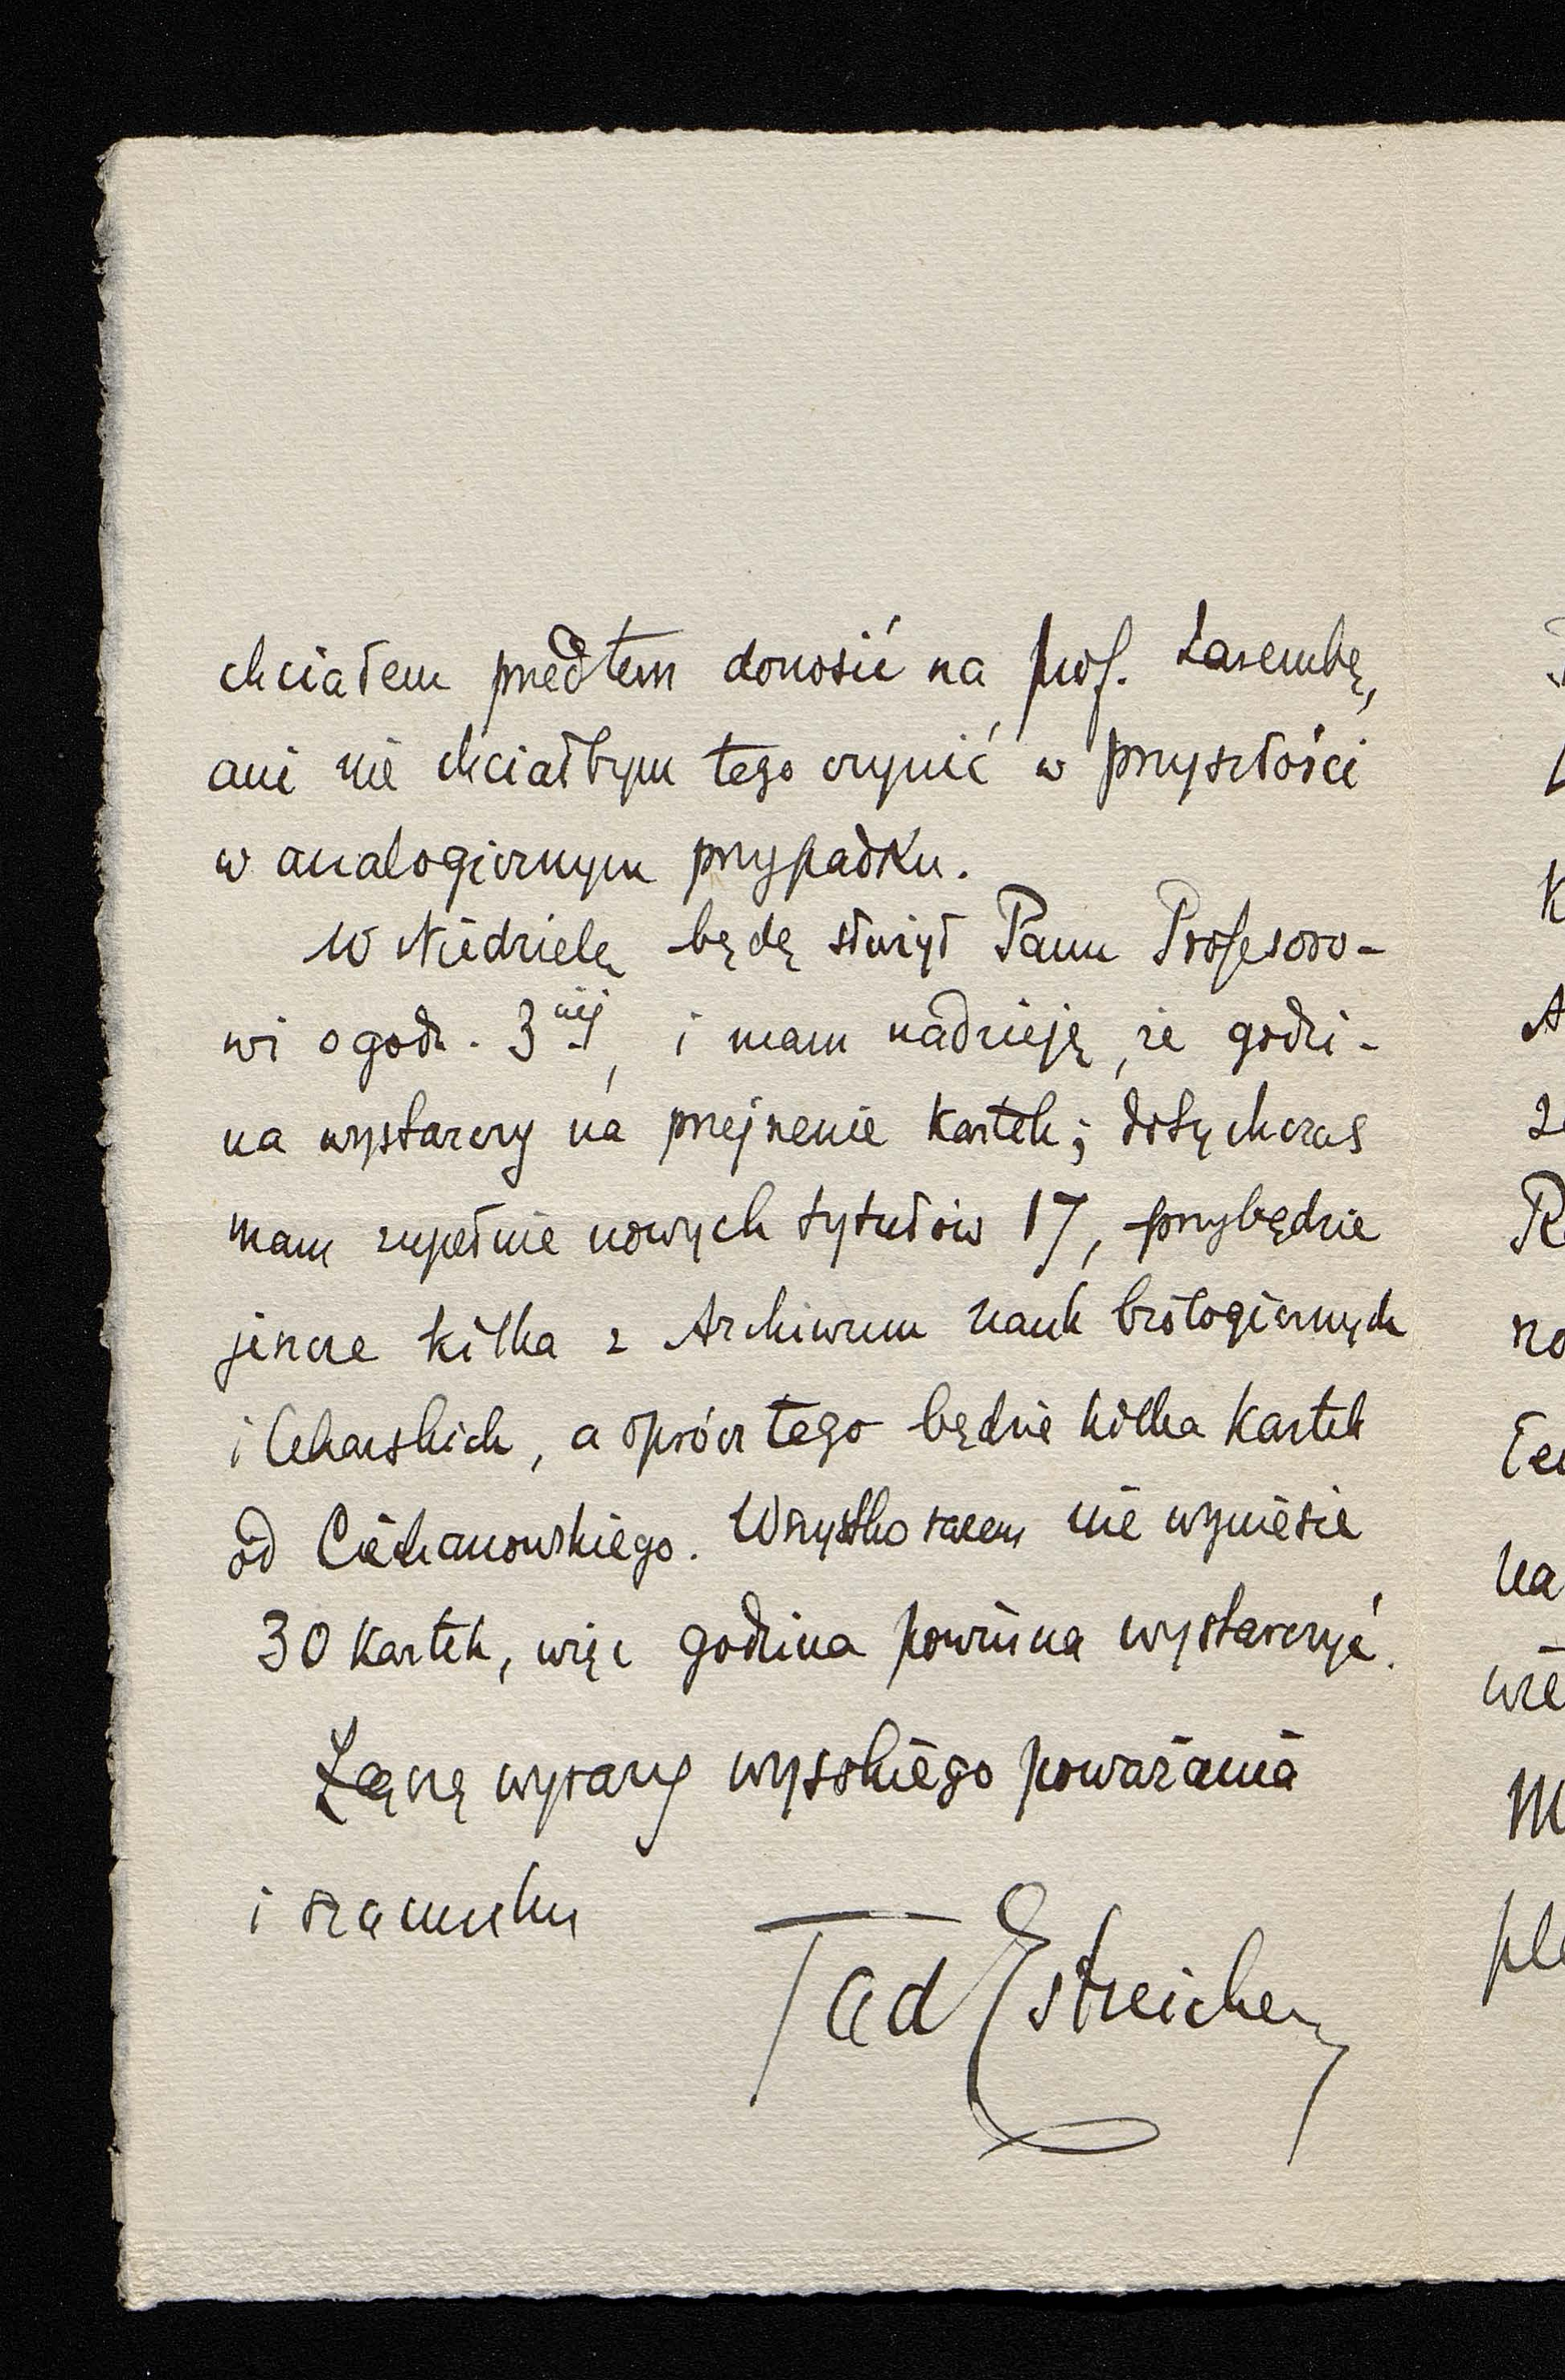 chciałem przedtem donosić na prof. Zarembę,
ani nie chciałbym tego czynić w przyszłości
w analogicznym przypadku.
W Niedzielę będę służył Panu Profesoro-
wi o godz. 3ciej, i mam nadzieję, że godzi-
na wystarczy na przejrzenie kartek; dotychczas
mam zupełnie nowych tytułów 17, przybędzie
jeszcze kilka z Archiwum nauk biologicznych
i lekarskich, a oprócz tego będzie kilka kartek
od Ciechanowskiego. Wszystko razem nie wyniesie
30 kartek, więc godzina powinna wystarczyć.
Łączę wyrazy wysokiego poważania
i szacunku
Tad Estreicher